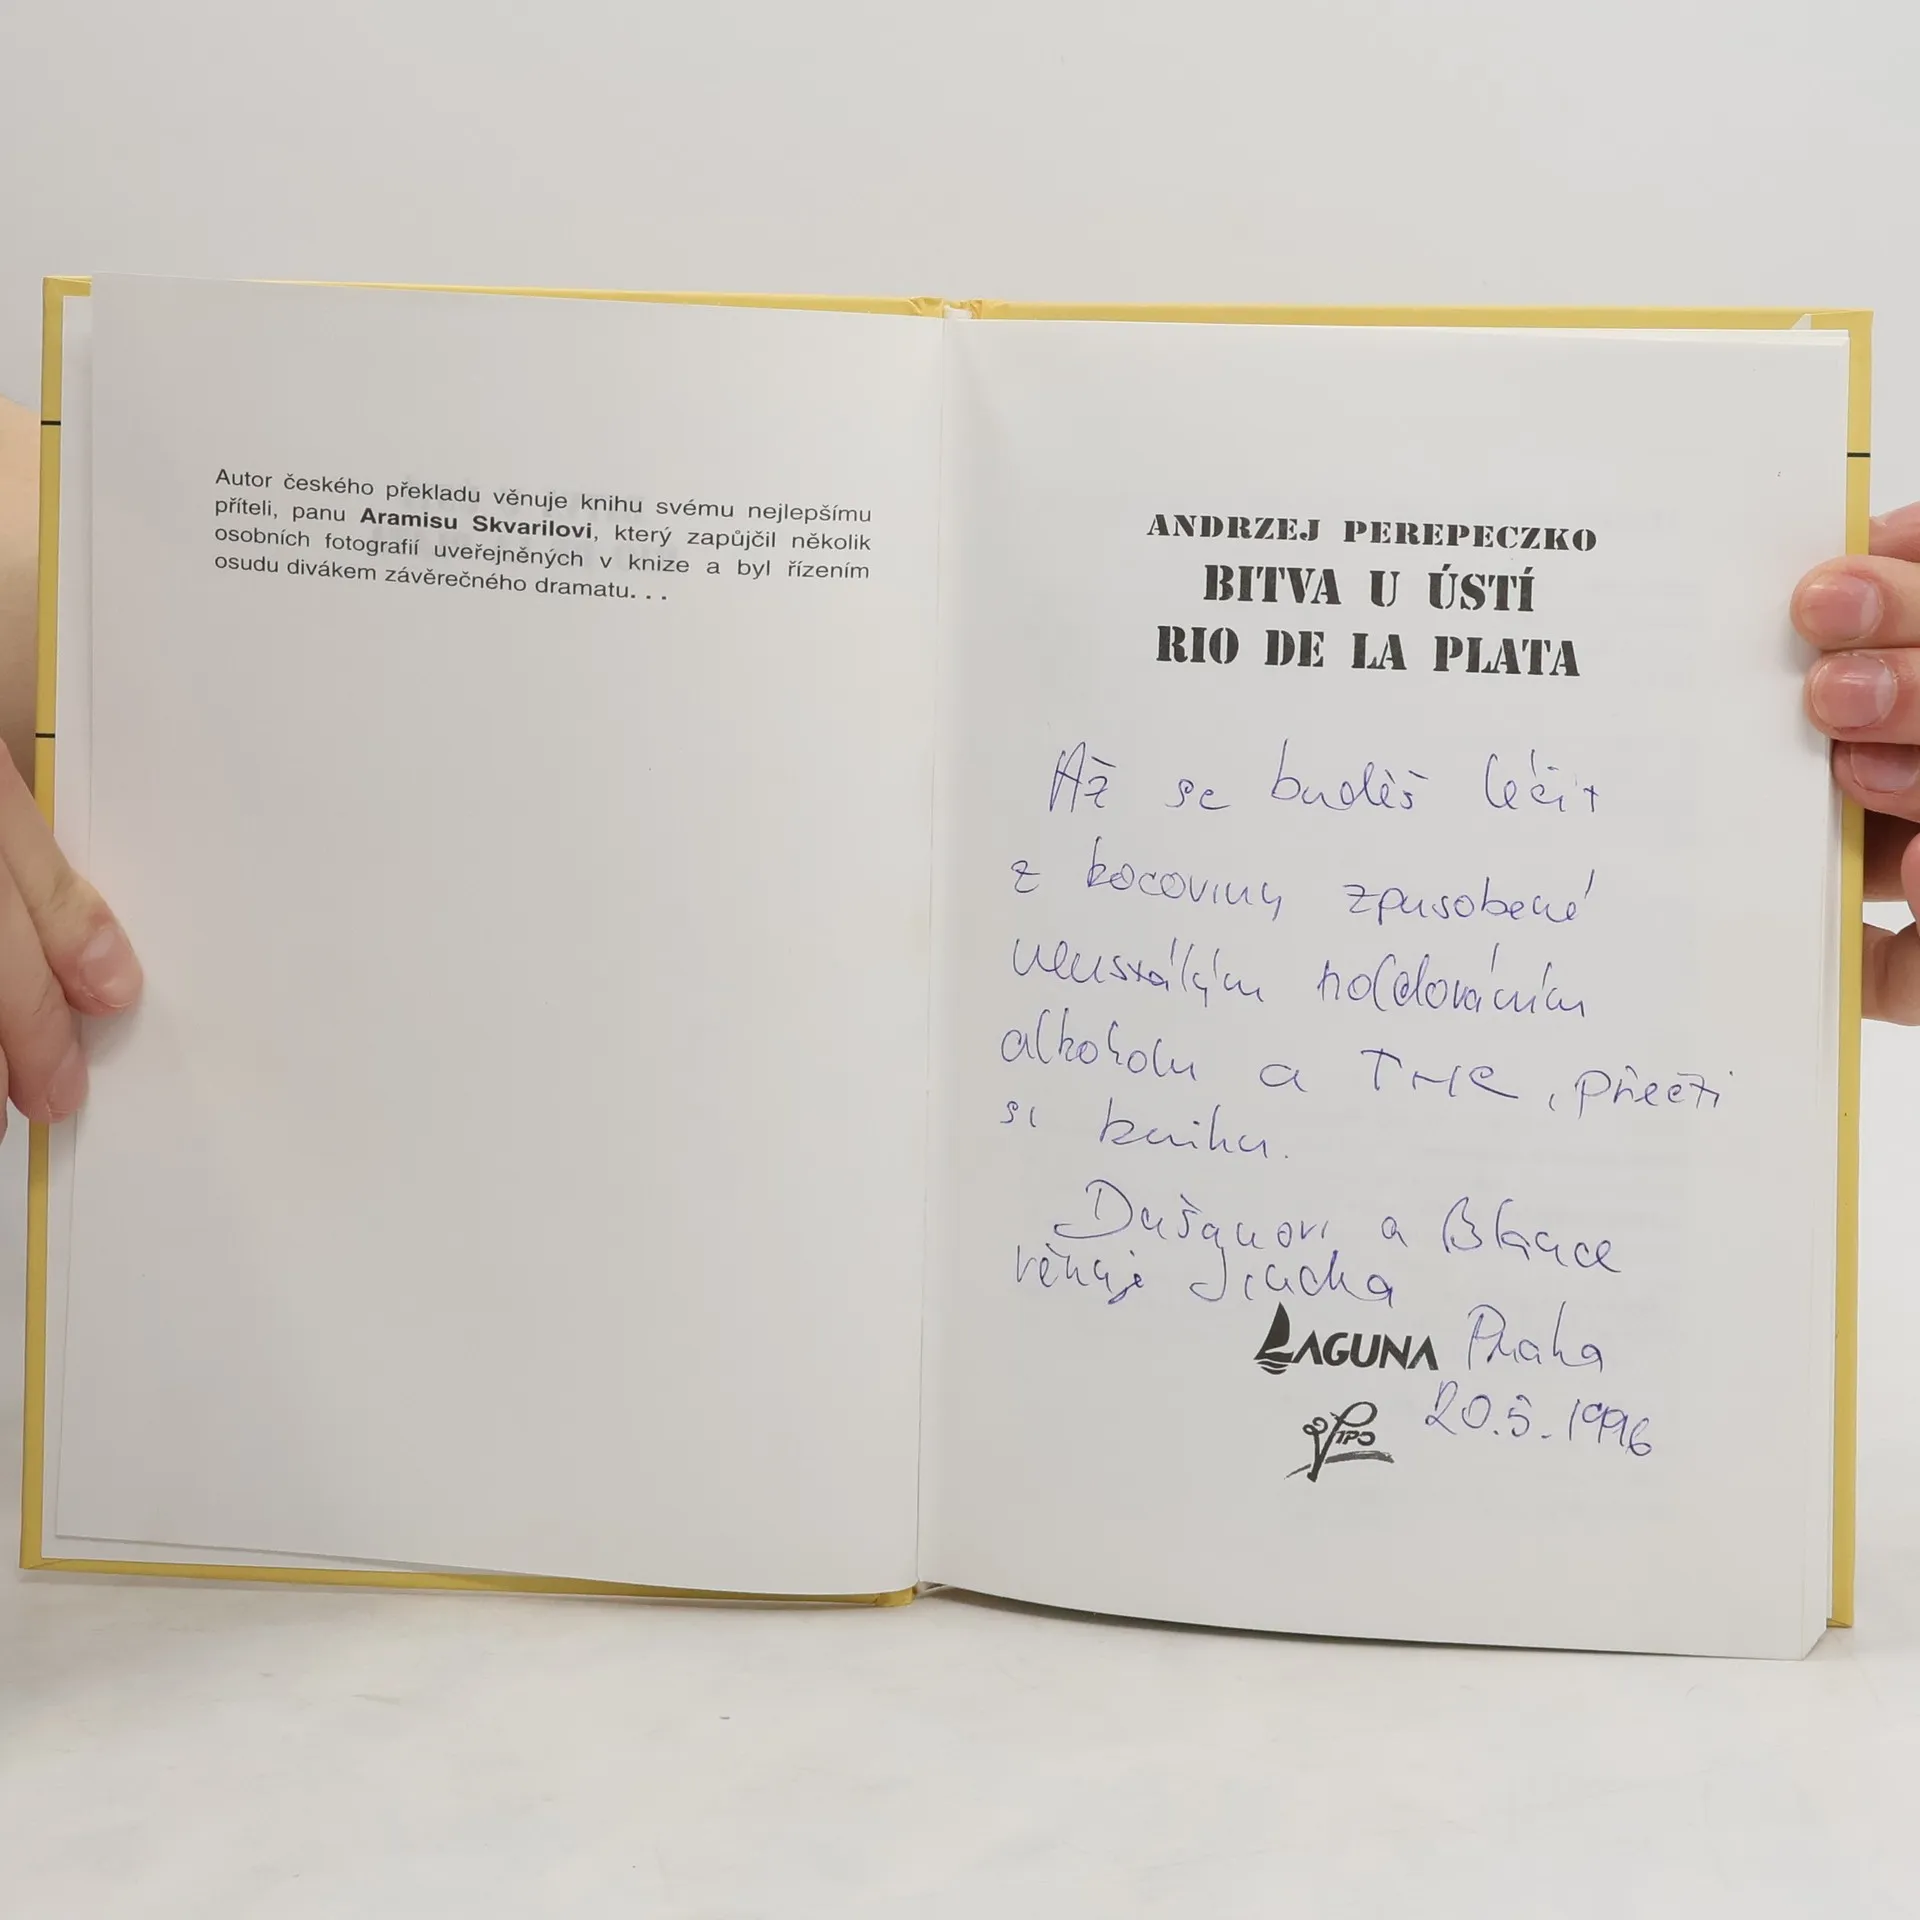 Autor českého překladu věnuje knihu svému nejlepšímu
příteli, panu Aramisu Skvarilovi, který zapůjčil několik
osobních fotografií uveřejněných v knize a byl řízením
osudu divákem závěrečného dramatu. . .
ANDRZEJ PEREPECZKO
BITVA U ÚSTÍ
RIO DE LA PLATA
Až se budeš léčit
z kocoviny způsobené
neustálým holdováním
alkoholu a THC, přečti
si knihu.
Dušanovi a Blance
věnuje Jindra
LAGUNA Praha
20.5.1996
VIPO